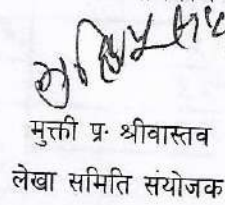 मुक्ती प्र. श्रीवास्तव
लेखा समिति संयोजक